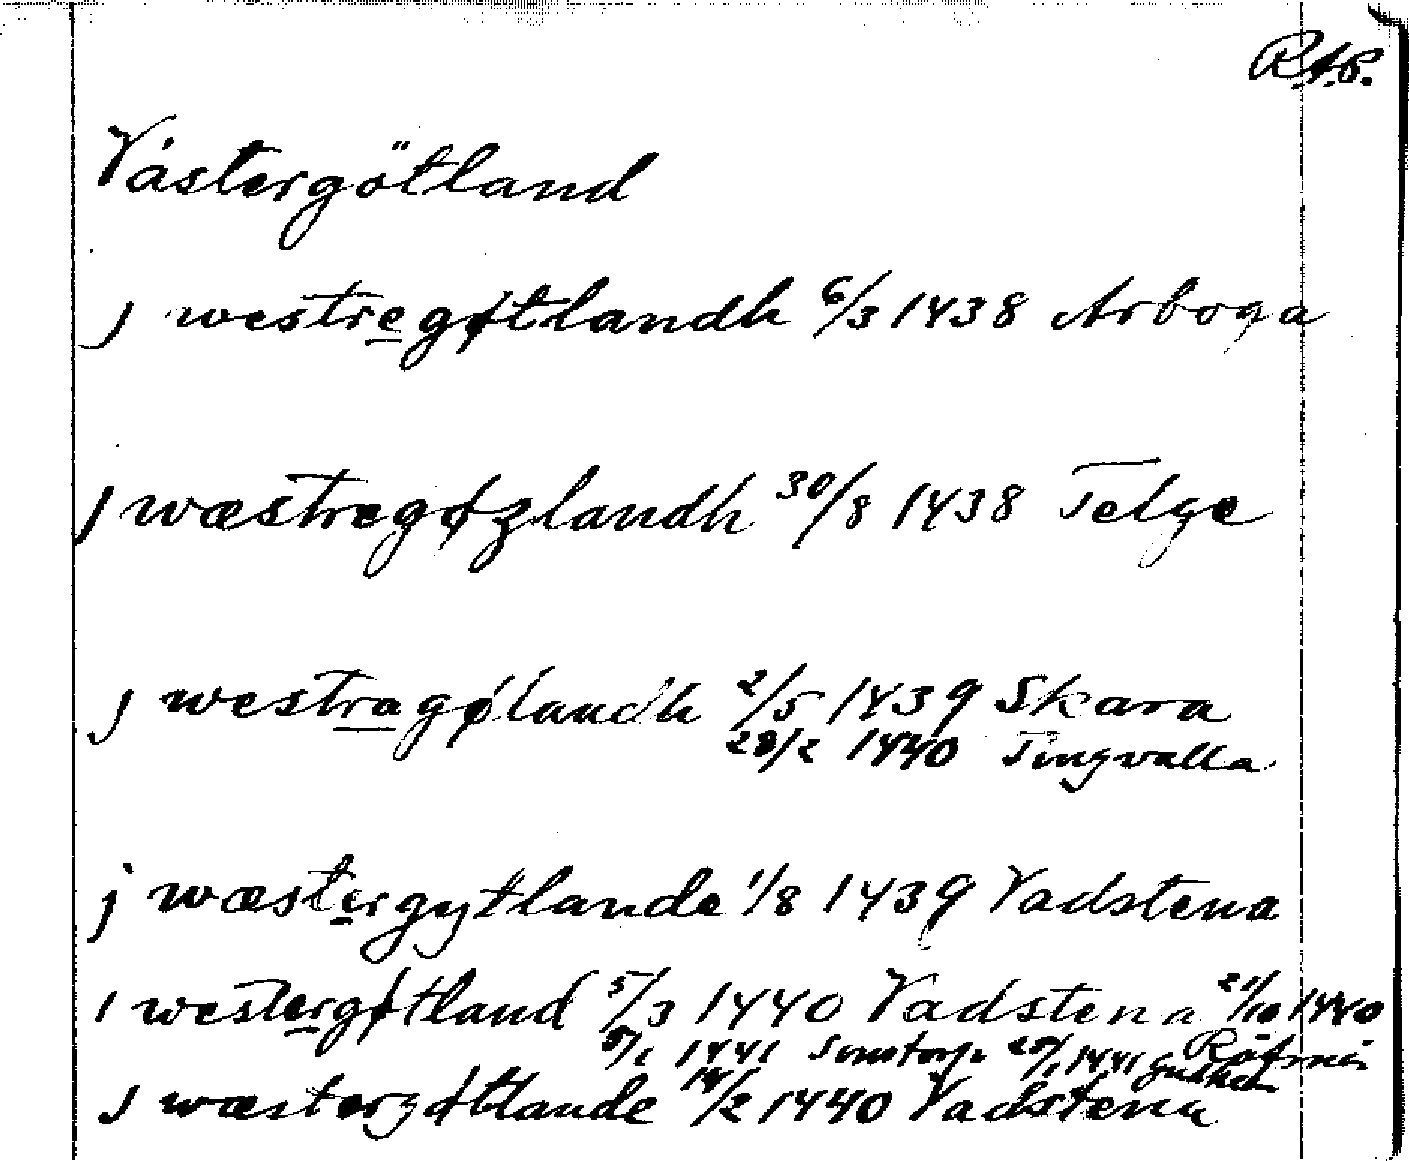 R.A.P.
Västergötland
j westregøtlandh 6/3 1438 Arboga
j wæstregøzlandh 30/8 1438 Telge
j westragølandh 2/5 1439 Skara
28/2 1440 Tingvalla
j wæstergytlande 1/8 1439 Vadstena
i westergøtland 5/3 1440 Vadstena 21/10 1440
1441 1441
j wæstergøtlande 14/2 1440 Vadstena